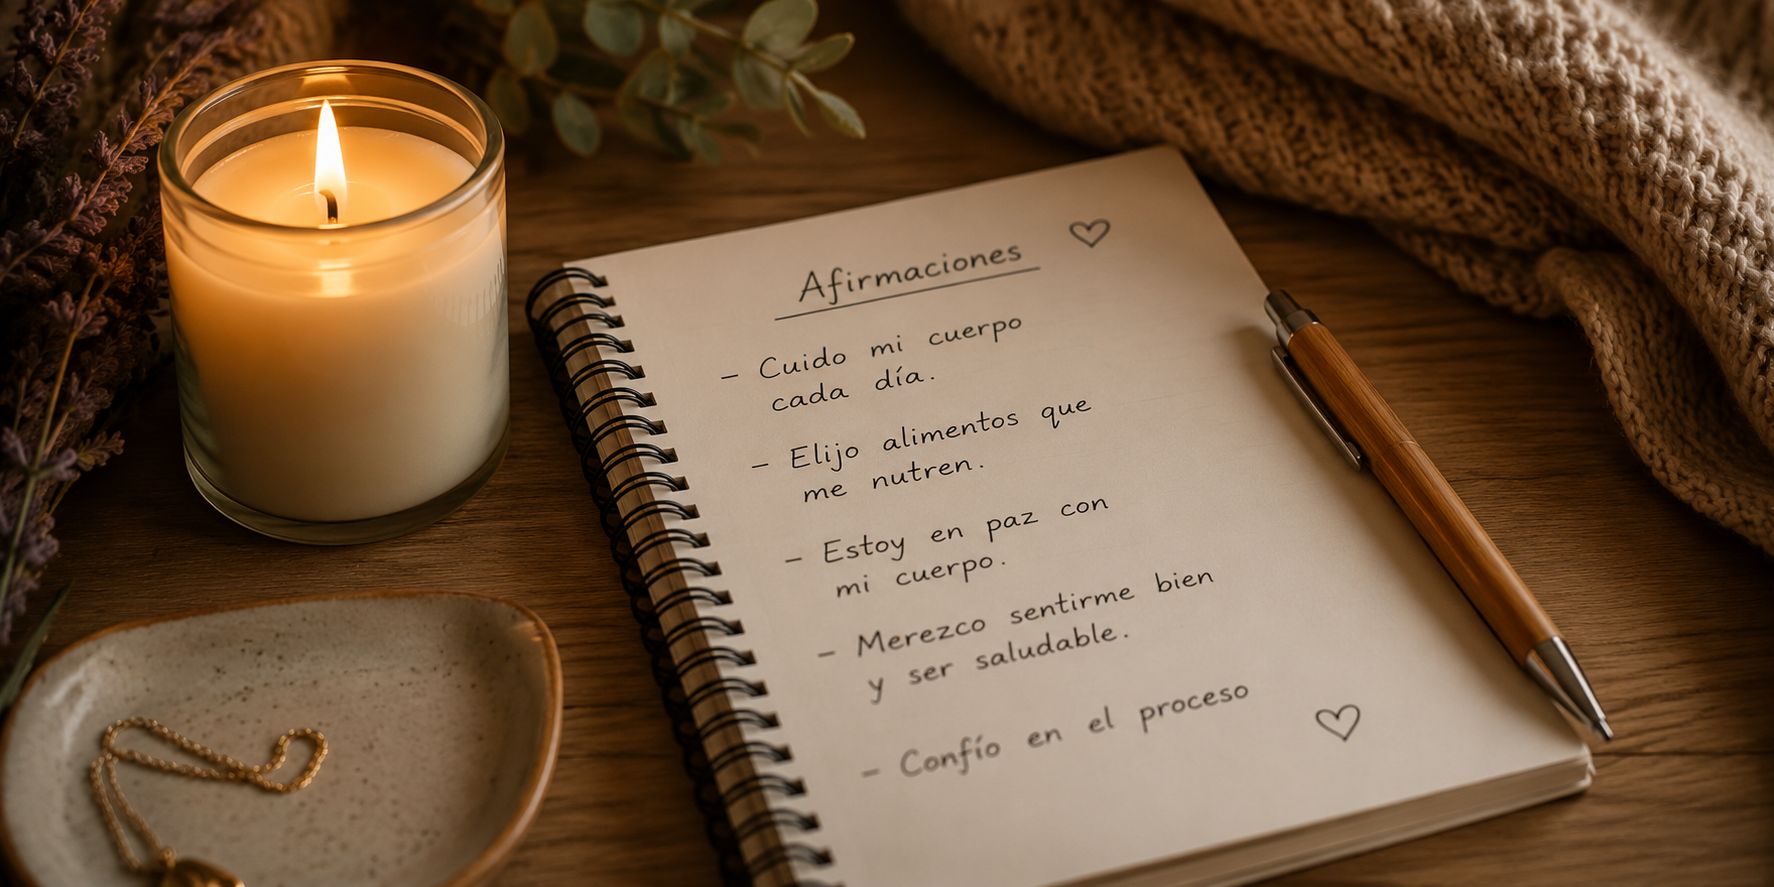 Afirmaciones
– Cuido mi cuerpo
cada día.
– Elijo alimentos que
me nutren.
– Estoy en paz con
mi cuerpo.
– Merezco sentirme bien
y ser saludable.
– Confío en el proceso